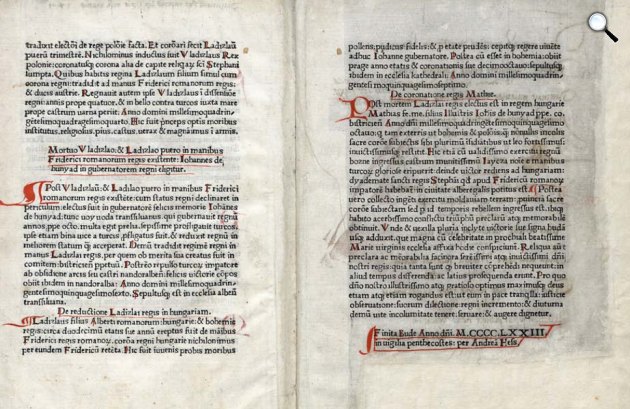 tradunt electōi de rege polōie facta. Et corōari fecit Ladizlaū
puerū trimestrē. Nichlominus inductus fuit Vladizlaus Rex
polonie: coronatusq; corona alia de capite reliqarū sci Stephani
sumpta. Quibus habitis regina Ladizlaum filium simul cum
corona regni: tradidit ad manus Friderici romanorum regis:
& ducis austrie. Regnauit autem ipse Vladizlaus
regni: annis prope quatuor, & in bello contra turcos iuxta mare
prope castrum uarna periit. Anno domini millesimoquadrin-
gentesimoquadragesimoquarto. Hic fuit prīceps optīs moribus
institutus, religiosus, pius, castus, uerax & magnanimus ī armis.
Mortuo Vladizlao: & Ladizlao puero in manibus
Friderici romanorum regis existente: Iohannes de
hunyad in gubernatorem regni eligitur.
Post Vladizlaū: & Ladizlao puero in manibus Friderici
romanorum regis existēte: cum status regni declinaret in
periculum: electus fuit in gubernatorē felicis memorie Iohānes
de hunyad: tunc uoyuoda transiluanus. qui gubernauit regnū
annos, ppe octo. multa egit prelia. sepissime profligauit turcos.
etsi etiam bina uice a turcis, pfligatus fuit. & reduxit regnū in
meliorem statum q̄ acceperat. Demū tradidit regimē regni in
manus Ladizlai regis. per quem ob merita sua creatus fuit in
comitem bistricēn ppetuū. Postrēo repulso turcorū impatore
ab obsidione arcis sui castri nandoralbeñ: felicis uictorie cōpos
obiit ibidem in nandoralba: Anno domini millesimoquadrin-
gentesimoquinquagesimosexto. Sepultusq; est in ecclesia albeñ
transiluana.
De reductione Ladizlai regis in hungariam.
Ladizlaus filius Alberti romanorum: hungarie: & bohemie
regis: circa duodecimū etatis sue annū ereptus fuit de manibus
Friderici regis romanorū. corōa regni hungarie nichilominus
per eundem Fridericū retēta. Hic fuit iuuenis probis moribus
pollens: pudicus: fidelis: & p etate prudēs: cepitq; regere uiuēte
adhuc Iohanne gubernatore. Postea cū esset in bohemia: obiit
prage anno etatis & coronationis sue decimooctauo: sepultusq;
ibidem in ecclesia kathedrali. Anno domini millesimoquadrin-
gentesimoquinquagesimoseptimo.
De coronatione regis Mathie.
Post mortem Ladizlai regis electus est in regem hungarie
Mathias se. me. filius Illustris Iohīs de hunyad ppe. co.
bistricieñ Anno dñi millesimoquadringētesimoquinquagesimo
octauo: q tam exteris ut bohemis & polōis: q̄ nonullis incolis
sacre corōe subiectis sibi plurimū īsidiātibus ut leo fortissimus:
inuictissimusq; restitit. Hic etiā cū ualidissimo exercitu regnū
bozne ingressus. castrum munitissimū Iaycza noīe e manibus
turcorū gloriose eripuerat. deinde uictor rediens ad hungariam:
dyademate sancti regis Stephāi qd apud Fridericū romanorū
impatorē habebat: in ciuitate alberegalis potitus est. Postea
uero collecto ingēti exercitu moldauiam terram: puincia sacre
corōe subiectam sed p id temporis rebellem ingressus est. ibiq;
habito acerbissimo conflictu triūphū preclarū atq; memorabilē
obtinuit. Vnde & uexilla pluria inclyte uictorie sue signa budā
usq; adduxit. que magna cū celebritate in prochiali beatissime
Marie uirginis ecclesia affixa hodie conspiciunt. Reliqua aūt
preclara ac mēorabilia facinora serēissimi atq; inuictissimi dñi
nostri regis: quia tanta sunt q breuiter cōprehēdi nequeunt: in
aliud tempus differenda: ac latius prosequenda erunt. Pro quo
dño nostro illustrissimo atq; gratioso optimus max imusq; deus
etiam atq; etiam rogandus est: ut eum in pace tranquilla: iusticie
obseruatione: suorum dīsectione regni incremento: & diuturna
demū uite incolumitate tenere: seruare: & augere dignetur.
Finita Bude Anno dñi. M.CCCC.LXXIII.
in uigilia penthecostes: per Andreā Hess.